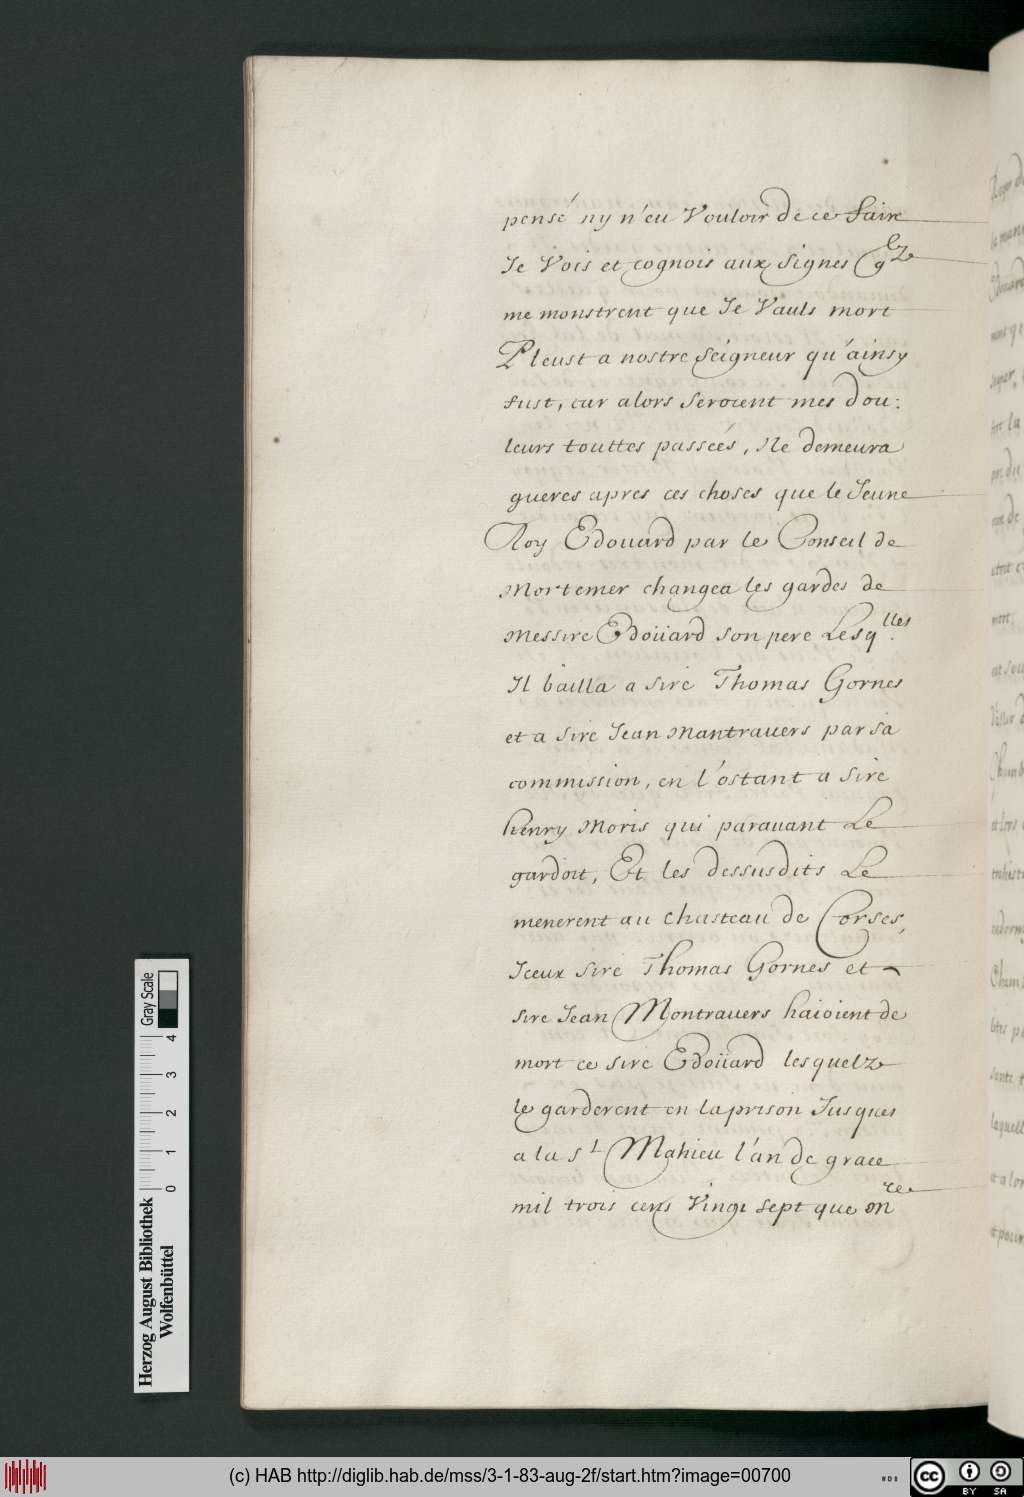 pensé ny n'eu Vouloir de ce faire
Je Vois et cognois aux signes q^lz
me monstrent que Je Vauls mort
Pleust a nostre seigneur qu'ainsy
fust, car alors seroient mes dou:
leurs touttes passeés, Ne demeura
gueres apres ces choses que le Jeune
Roy Edouard par le Conseil de
Mortemer changea les gardes de
Messire Edoüard son pere Lesq^lles.
Il bailla a sire Thomas Gornes
et a sire Jean Mantrauers par sa
commission, en l'ostant a sire
henry Moris qui parauant Le
gardoit, Et les dessusdits Le
menerent au chasteau de Corses,
Iceux sire Thomas Gornes et
sire Jean Montrauers haioient de
mort ce sire Edoüard lesquelz
le garderent en la prison Jusques
a la s^t Mahieu l'an de grace
mil trois cens Vingt sept que m^re
Herzog August Bibliothek
Wolfenbüttel
Gray Scale
0 1 2 3 4
(c) HAB http://diglib.hab.de/mss/3-1-83-aug-2f/start.htm?image=00700
WDB
cc BY SA